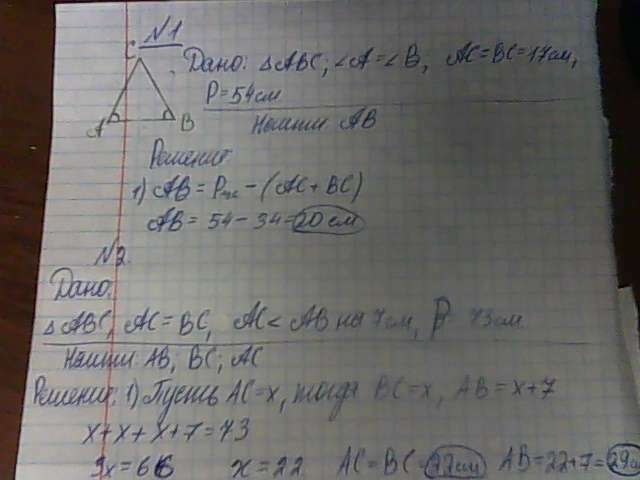 №1
C
A
B
Дано: △ABC; ∠A=∠B, AC=BC=17см,
P=54см
Найти AB
Решение
1) AB = P - (AC+BC)
AB = 54 - 34 = 20 см
№2
Дано:
△ABC, AC=BC, AC < AB на 7 см, P 73 см
Найти: AB; BC; AC
Решение: 1) Пусть AC=x, тогда BC=x, AB=x+7
x+x+x+7=73
3x=66 x=22 AC=BC=22см AB=22+7=29см